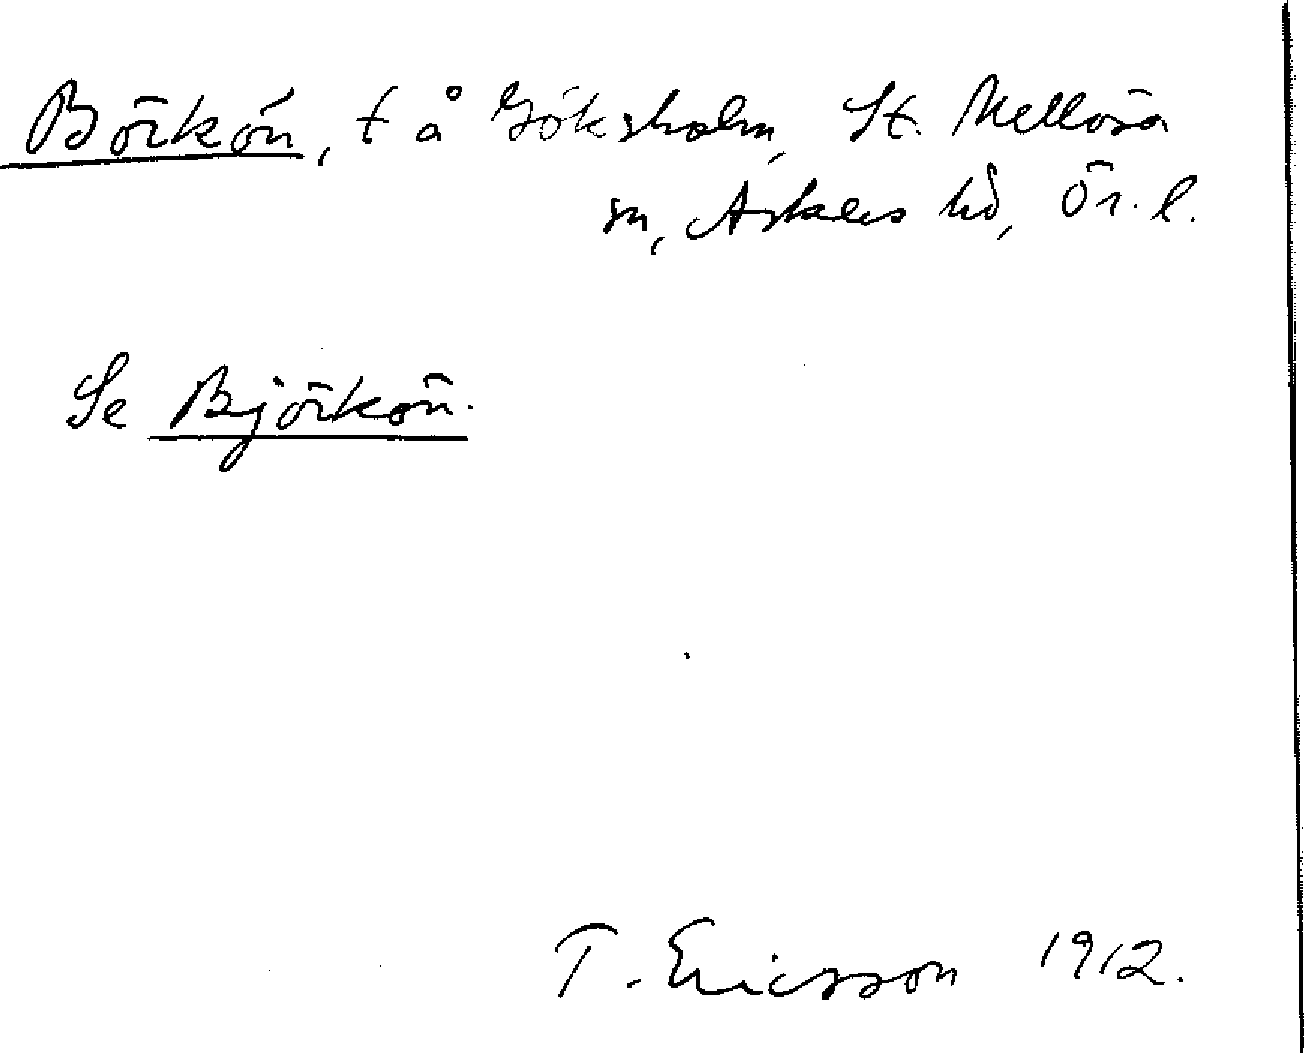 Börkön, t å Göksholm, St. Mellösa
sn, Askers hd, Ör. l.
Se Björkön.
T. Ericsson 1912.